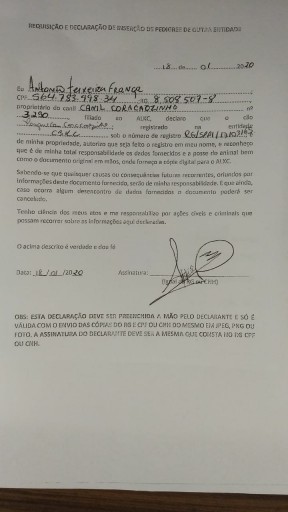 REQUISIÇÃO E DECLARAÇÃO DE INSERÇÃO DE PEDIGREE DE OUTRA ENTIDADE
18 01 2020
Eu Antonio Teixeira França
CPF 564.783.998 34 RG 8.508.507-8
proprietário do canil CANIL CORACAOZINHO nº
3.290 filiado ao ALKC, declaro que o cão
registrado na entidade
sob o número de registro
de minha propriedade, autorizo que seja feito o registro em meu nome, e reconheço
que é de minha total responsabilidade os dados fornecidos e a posse do animal bem
como o documento original em mãos, onde forneço a cópia digital para a ALKC.
Sabendo-se que quaisquer causas ou consequências futuras recorrentes, oriundas por
informações deste documento fornecido, serão de minha responsabilidade. E que ainda,
caso ocorra algum desencontro de dados fornecidos o documento poderá ser
cancelado.
Tenho ciência dos meus atos e me responsabilizo por ações cíveis e criminais que
possam recorrer sobre as informações aqui declaradas.
O acima descrito é verdade e dou fé
Data: 18 / 01 /2020 Assinatura:
(Igual do RG ou CNH)
OBS: ESTA DECLARAÇÃO DEVE SER PREENCHIDA A MÃO PELO DECLARANTE E SÓ É
VÁLIDA COM O ENVIO DAS CÓPIAS DO RG E CPF OU CNH DO MESMO EM JPEG, PNG OU
FOTO. A ASSINATURA DO DECLARANTE DEVE SER A MESMA QUE CONSTA NO RG CPF
OU CNH.